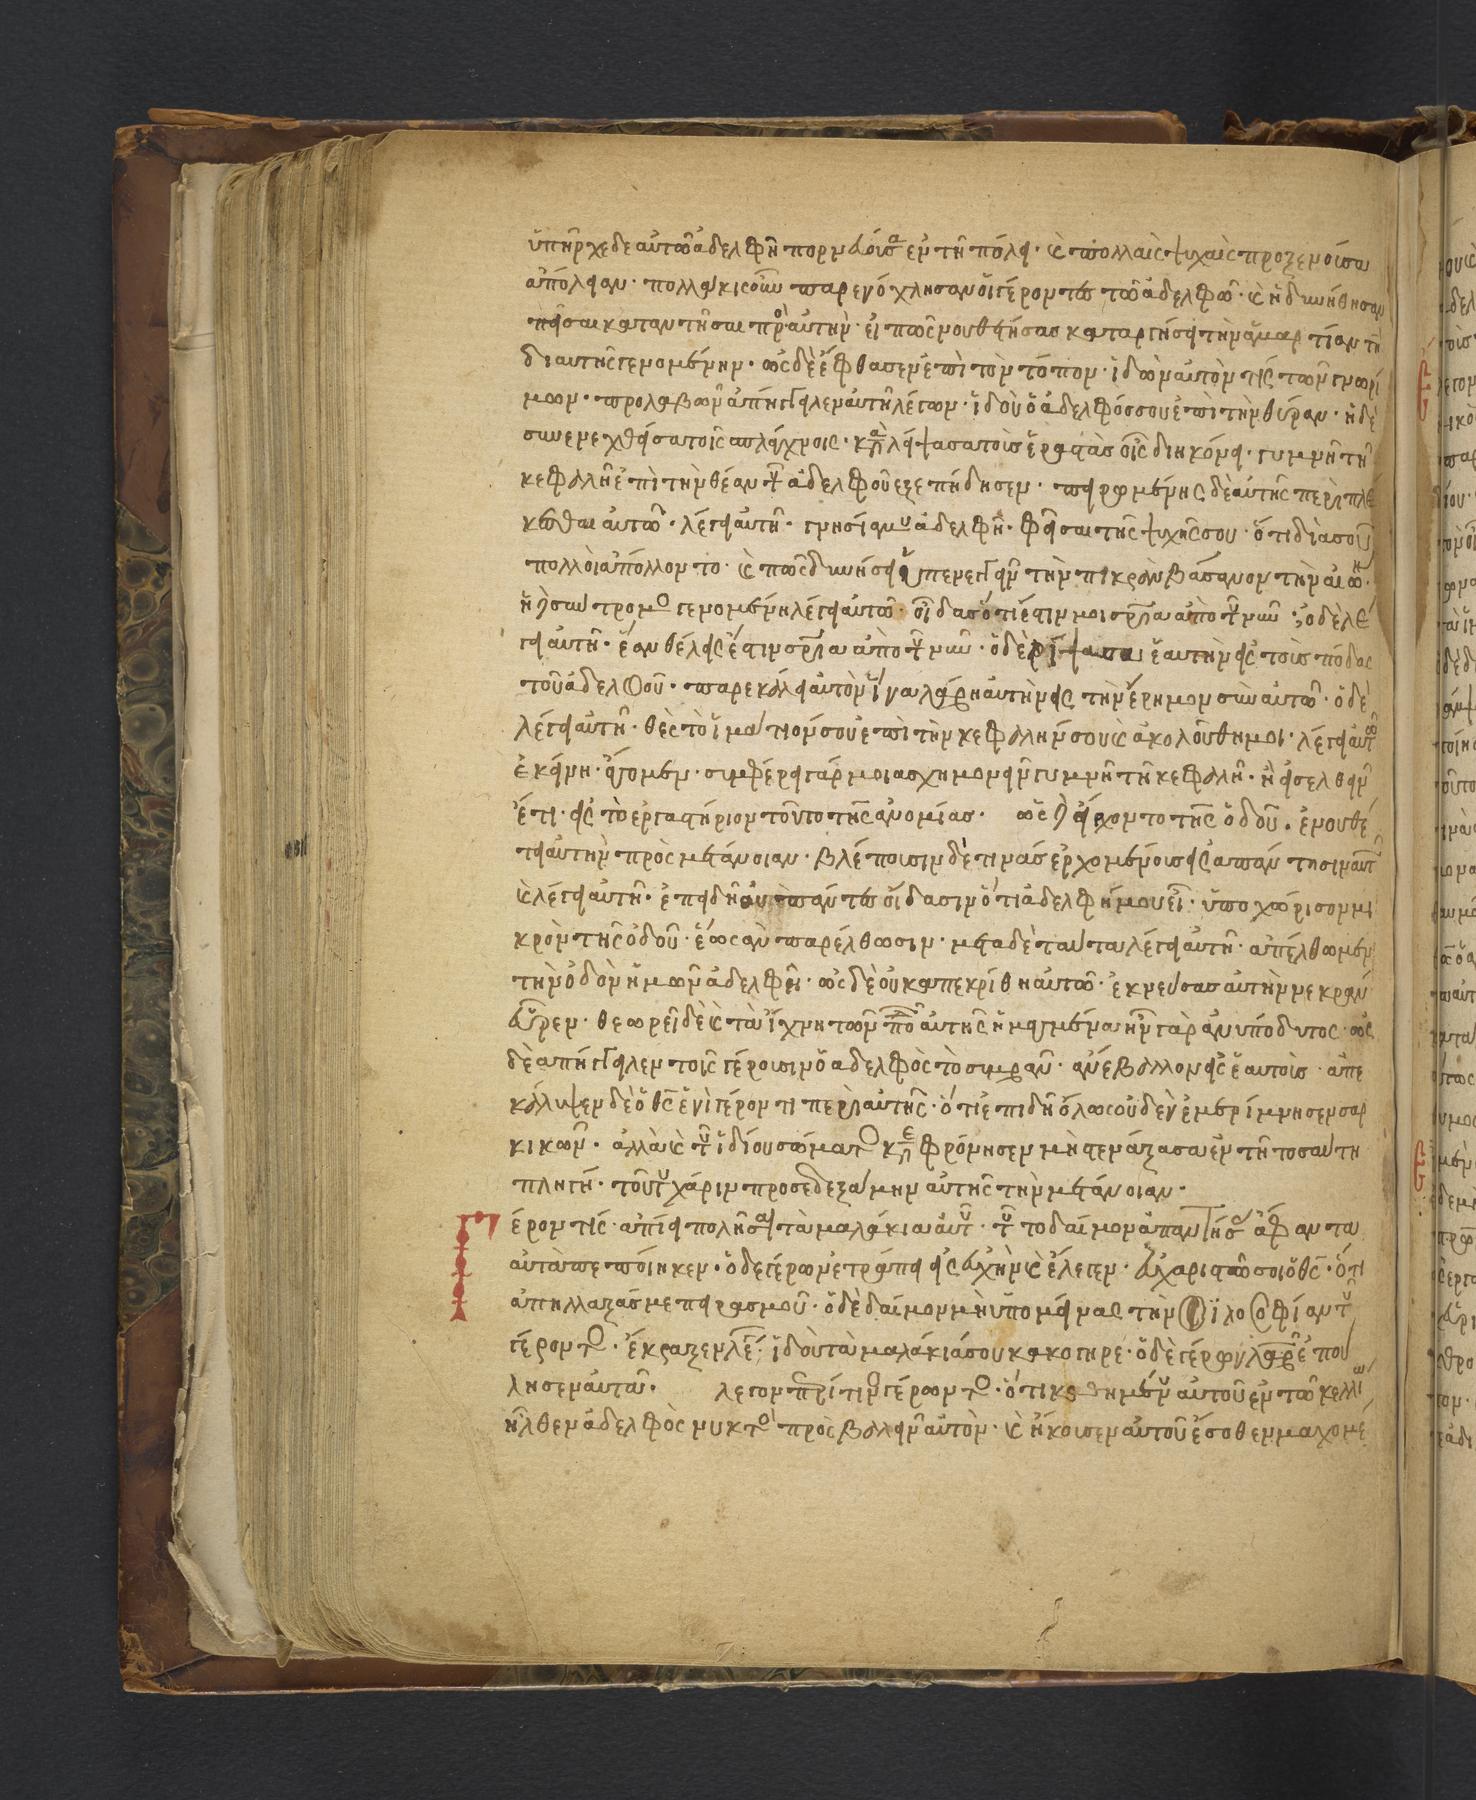 ὑπῆρχε δὲ αὐτῶ ἀδελφὴ πόρνη ἐν τῆ πόλει· καὶ πολλαῖς ψυχαῖς προξενοῦσα
ἀπώλειαν· πολλάκις οὖν παρενόχλησαν οἱ γέροντες τῶ ἀδελφῶ· καὶ ἠδυνήθησαν
πεῖσαι καταντῆσαι πρὸς αὐτήν· εἴ πως νουθετήσας καταργήσει τὴν ἁμαρτίαν τὴν
δι αὐτῆς γενομένην· ὡς δὲ ἔφθασεν ἐπὶ τὸν τόπον· ἰδὼν αὐτόν τις τῶν γνωρί
μων· προλαβὼν ἀπήγγειλεν αὐτῆ λέγων· ἰδοὺ ὁ ἀδελφός σου ἐπὶ τὴν θύραν· ἡ δὲ
συνενεχθεῖσα τοῖς σπλάχνοις· καταλείψασα τοὺς ἐραστὰς οἷς διηκόνει· γυμνῆ τῆ
κεφαλῆ ἐπὶ τὴν θέαν τοῦ ἀδελφοῦ ἐξεπήδησεν· πειρωμένης δὲ αὐτῆς περιπλέ
κεσθαι αὐτῶ· λέγει αὐτῆ· γνησία μου ἀδελφή· φεῖσαι τῆς ψυχῆς σου· ὅτι διὰ σοῦ
πολλοὶ ἀπόλλοντο· καὶ πῶς δυνήσει ὑπενεγκεῖν τὴν πικρὰν βάσανον τὴν αἰων·
ἡ δὲ σύντρομος γενομένη λέγει αὐτῶ· οἶδας ὅτι ἔστιν μοι σωτηρία ἀπὸ τοῦ νῦν; ὁ δὲ λέ
γει αὐτῆ· ἐὰν θέλεις ἔστιν σωτηρία ἀπὸ τοῦ νῦν· ὁ δὲ ῥίψασα ἑαυτὴν εἰς τοὺς πόδας
τοῦ ἀδελφοῦ· παρεκάλει αὐτὸν ἵνα λάβη αὐτὴν εἰς τὴν ἔρημον σὺν αὐτῶ· ὁ δὲ
λέγει αὐτῆ· θὲς τὸ ἱμάτιόν σου ἐπὶ τὴν κεφαλήν σου καὶ ἀκολούθη μοι· λέγει αὐτῶ
ἐκείνη· ἄγομεν· συμφέρει γάρ μοι ἀσχημονεῖν γυμνῆ τῆ κεφαλῆ· ἢ εἰσελθεῖν
ἔτι· εἰς τὸ ἐργαστήριον τοῦτο τῆς ἀνομίας· ὡς δὲ εἴχοντο τῆς ὁδοῦ· ἐνουθέ
τει αὐτὴν πρὸς μετάνοιαν· βλέπουσιν δέ τινας ἐρχομένους εἰς ἀπάντησιν αὐτῶν
καὶ λέγει αὐτῆ· ἐπειδὴ οὐ πάντες οἴδασιν ὅτι ἀδελφή μου εἶ· ὑποχώρισον μι
κρὸν τῆς ὁδοῦ· ἕως ἂν παρέλθωσιν· μετὰ δὲ ταῦτα λέγει αὐτῆ· ἀπέλθωμεν
τὴν ὁδὸν ἡμῶν ἀδελφή· ὡς δὲ οὐκ ἀπεκρίθη αὐτῶ· ἐκνεύσας αὐτὴν νεκρὰν
εὗρεν· θεωρεῖ δὲ καὶ τὰ ἴχνη τῶν ποδῶν αὐτῆς ἡμαγμένα ἦν γὰρ ἀνυπόδυτος ὡς
δὲ ἀπήγγειλεν τοῖς γέρουσιν ὁ ἀδελφὸς τὸ συμβάν· ἀνέβαλλον εἰς ἑαυτούς· ἀπε
κάλυψεν δὲ ὁ θεὸς ἑνὶ γέροντι περὶ αὐτῆς· ὅτι ἐπιδὴ ὅλως οὐδὲν ἐμερίμνησεν σαρ
κικῶν· ἀλλὰ καὶ τοῦ ἰδίου σώματος κατεφρόνησεν μὴ στενάξασα ἐν τῆ τοσαύτη
πληγῆ· τούτου χάριν προσεδεξάμην αὐτῆς τὴν μετάνοιαν·
Γέρον τις· ἀπίει πολῆσαι τὰ μαλάκια αὐτοῦ· τοῦ το δαίμονα ἀπαντήσας ἀφαντα
αὐτὰ πεποίηκεν· ὁ δὲ γέρων ἐτράπη εἰς εὐχὴν καὶ ἔλεγεν· εὐχαριστῶ σοι ὁ θεὸς· ὅτι
ἀπήλλαξάς με πειρασμοῦ· ὁ δὲ δαίμον μὴ ὑπομείνας τὴν φιλοσοφίαν τοῦ
γέροντος· ἔκραξεν λέγων· ἰδοὺ τὰ μαλάκιά σου κακόγηρε· ὁ δὲ γέρων λαβὼν ἐπού
λησεν αὐτά· λεγον περί τινος γέροντος· ὅτι καθημένου αὐτοῦ ἐν τῶ κελλίω
ἦλθεν ἀδελφὸς νυκτὸς πρὸς βαλεῖν αὐτὸν· καὶ ἤκουσεν αὐτοῦ ἔσοθεν μαχομέ